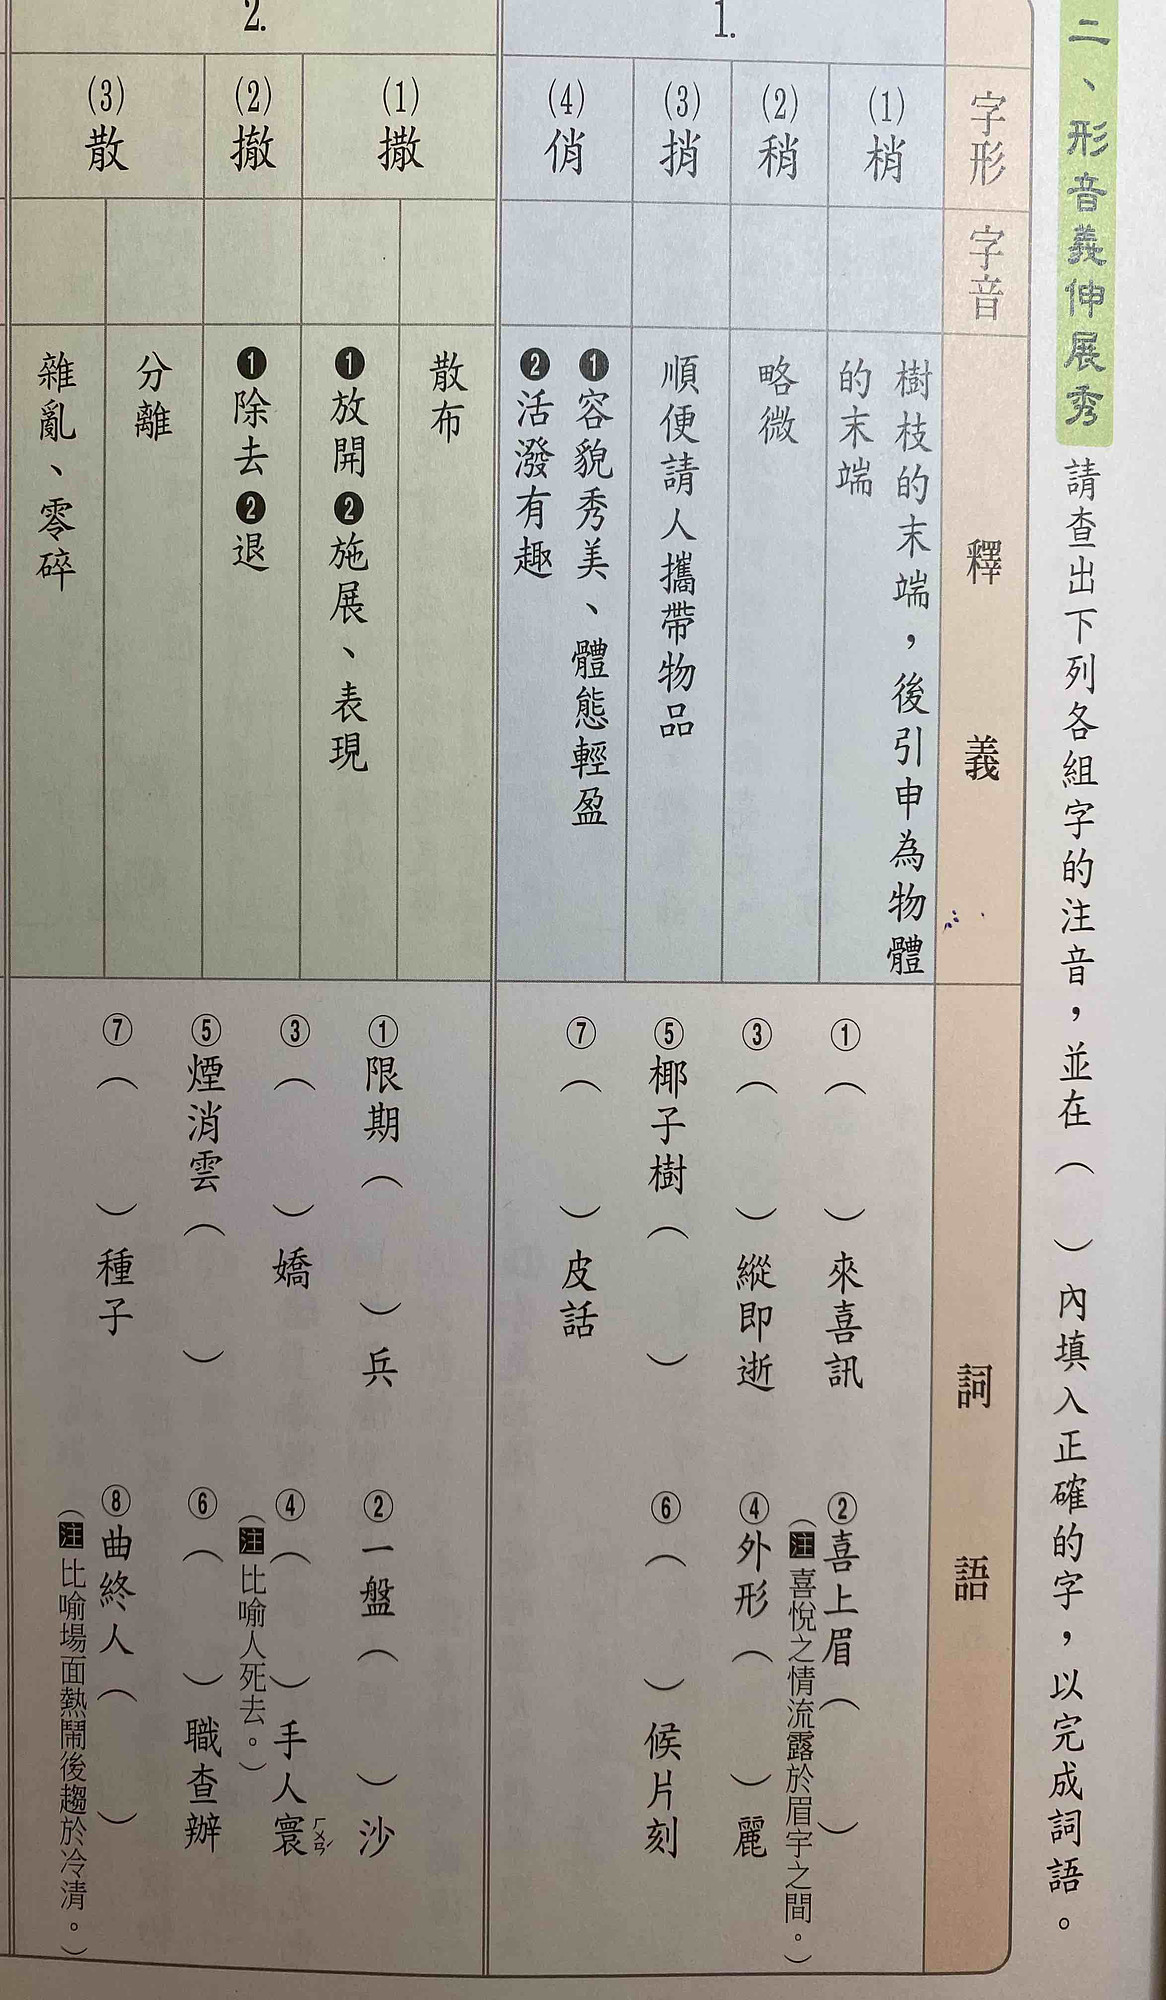 二、形音義伸展秀 請查出下列各組字的注音，並在（　）內填入正確的字，以完成詞語。
字形
字音
釋義
詞語
1.
(1)梢
樹枝的末端，後引申為物體
的末端
(2)稍
略微
(3)捎
順便請人攜帶物品
(4)俏
❶容貌秀美、體態輕盈
❷活潑有趣
①（　）來喜訊
②喜上眉（　）
（注喜悅之情流露於眉宇之間。）
③（　）縱即逝
④外形（　）麗
⑤椰子樹（　）
⑥（　）候片刻
⑦（　）皮話
2.
(1)撒
散布
❶放開❷施展、表現
(2)撤
❶除去❷退
(3)散
分離
雜亂、零碎
①限期（　）兵
②一盤（　）沙
③（　）嬌
④（　）手人寰ㄏㄨㄢˊ
（注比喻人死去。）
⑤煙消雲（　）
⑥（　）職查辦
⑦（　）種子
⑧曲終人（　）
（注比喻場面熱鬧後趨於冷清。）